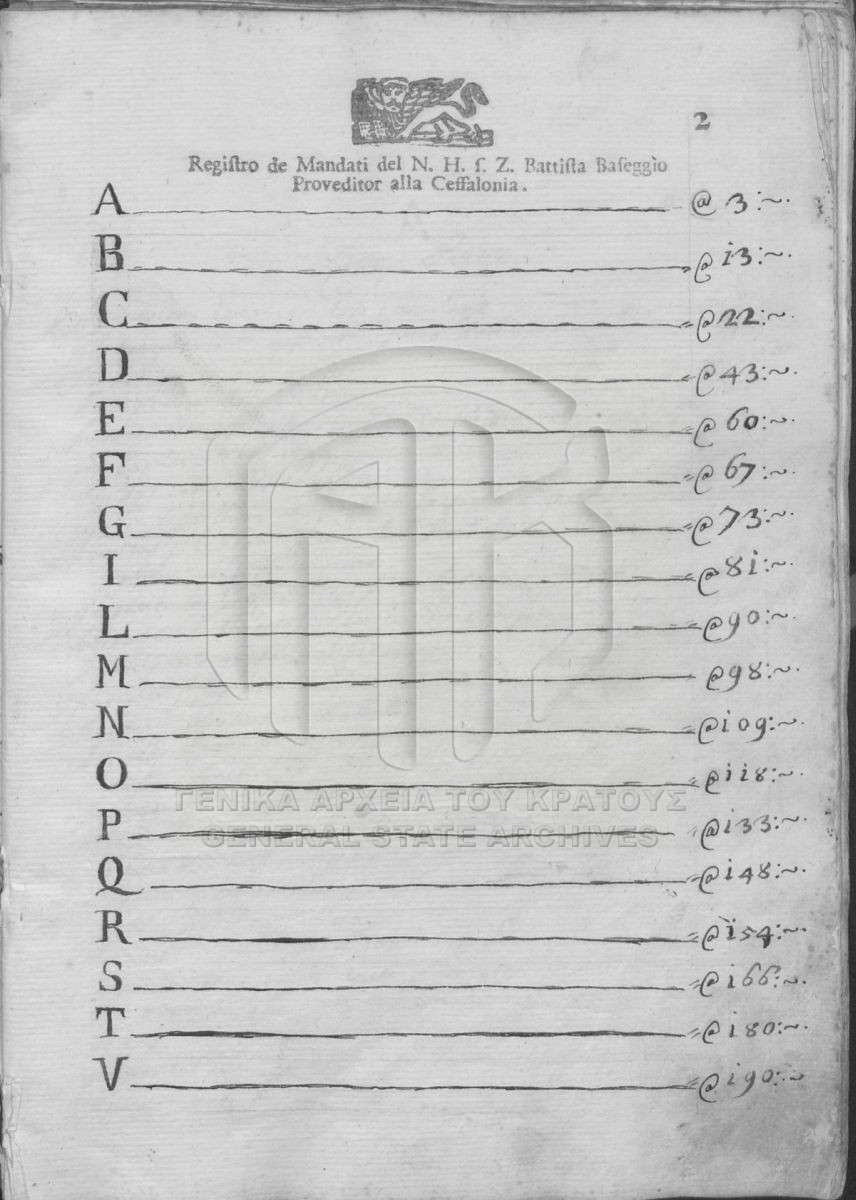 2
Regiſtro de Mandati del N. H. ſ. Z. Battiſta Baſeggio
Proveditor alla Ceffalonia.
A @ 3:~.
B @ i3:~.
C @ 22:~.
D @ 43:~.
E @ 60:~.
F @ 67:~.
G @ 73:~.
I @ 8i:~.
L @ 90:~.
M @ 98:~.
N @ i09:~.
O @ ii8:~.
P @ i33:~.
Q @ i48:~.
R @ i54:~.
S @ i66:~.
T @ i80:~.
V @ i90:~
ΓΕΝΙΚΑ ΑΡΧΕΙΑ ΤΟΥ ΚΡΑΤΟΥΣ
GENERAL STATE ARCHIVES